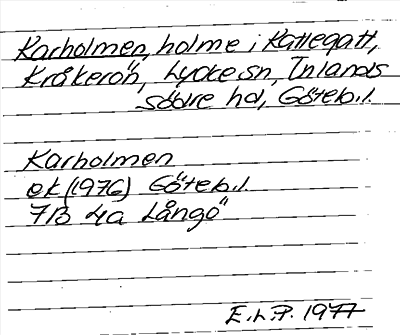 Karholmen, holme i Kattegatt,
Kråkerön, Lycke sn, Inlands
södre hd, Göteb.l.
Karholmen
ek (1976) Göteb.l.
7B 4a Långö
E.L.P. 1977